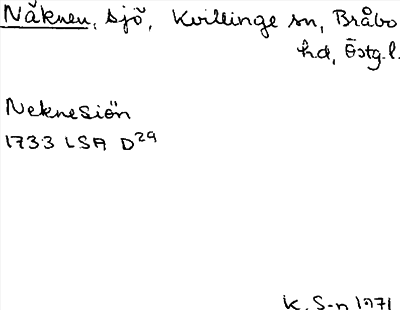 Näknen, sjö, Kvillinge sn, Bråbo
hd, Östg.l.
Neknesiön
1733 LSA D29
K. S-n 1971